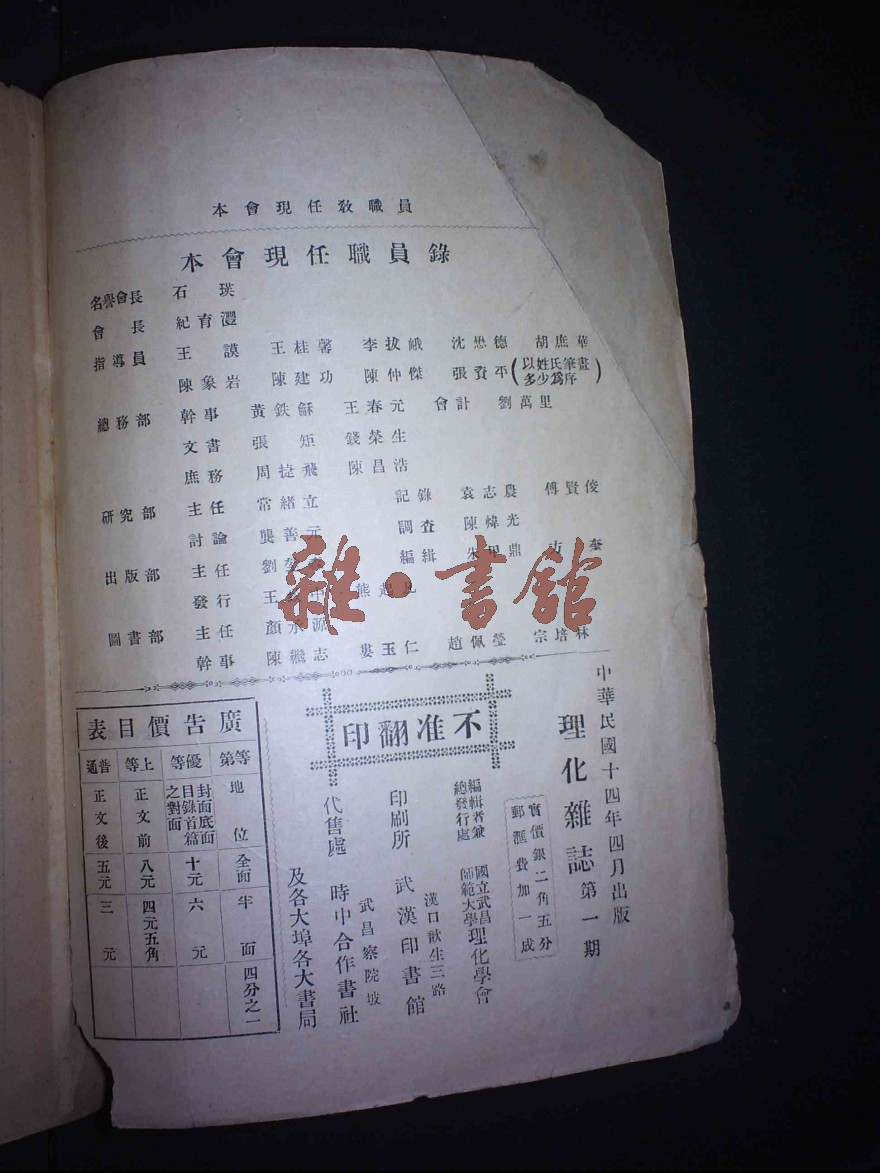 本會現任教職員
本會現任職員錄
名譽會長 石瑛
會長 紀育灃
指導員 王謨 王桂馨 李拔峨 沈懋德 胡庶華
陳象岩 陳建功 陳仲傑 張資平(以姓氏筆畫多少爲序)
總務部 幹事 黃鉄龢 王春元 會計 劉萬里
文書 張矩 錢榮生
庶務 周㨗飛 陳昌浩
研究部 主任 常緒立 記錄 袁志農 傅賢俊
討論 龔善元 調查 陳煒光
出版部 主任 劉 編緝 朱 鼎
發行 王 熊
圖書部 主任 顏承源
幹事 陳繼志 婁玉仁 趙佩瑩 宗培林
雜·書館
中華民國十四年四月出版
理化雜誌第一期
實價銀二角五分
郵滙費加一成
編輯者兼總發行處 國立武昌師範大學理化學會
漢口歆生三路
印刷所 武漢印書館
武昌察院坡
代售處 時中合作書社
及各大埠各大書局
不准翻印
廣告價目表
等第 地位 全面 半面 四分之一
優等 封面底面目錄首篇之對面 十元 六元
上等 正文前 八元 四元五角
普通 正文後 五元 三元